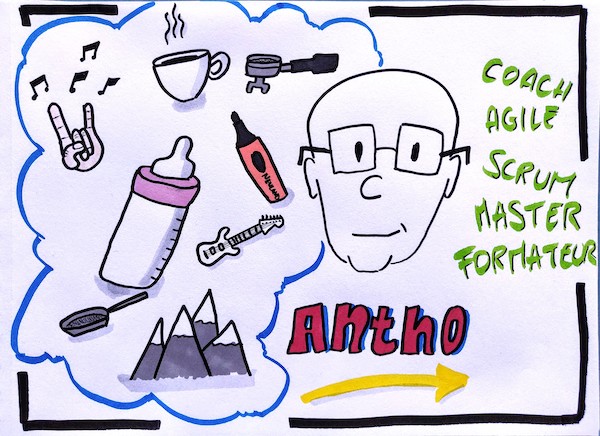 COACH
AGILE
SCRUM
MASTER
FORMATEUR
Antho